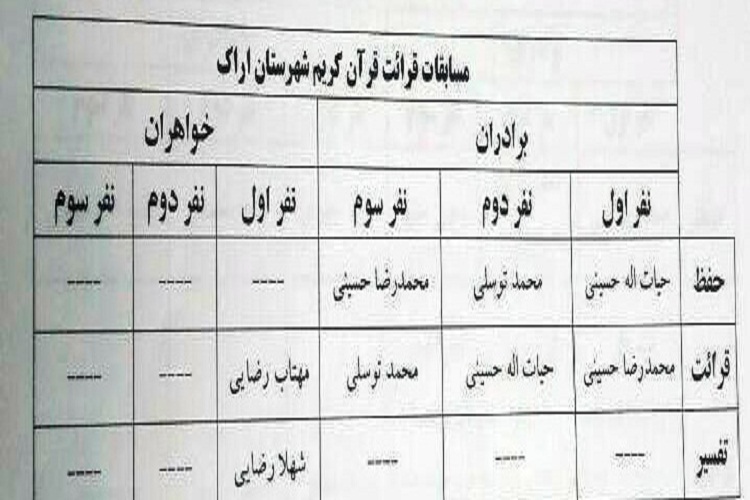 مسابقات قرائت قرآن کریم شهرستان اراک
برادران خواهران
نفر اول نفر دوم نفر سوم نفر اول نفر دوم نفر سوم
حفظ حیات اله حسینی محمد توسلی محمدرضا حسینی ---- ---- ----
قرائت محمدرضا حسینی حیات اله حسینی محمد توسلی مهتاب رضایی ---- ----
تفسیر ---- ---- ---- شهلا رضایی ---- ----